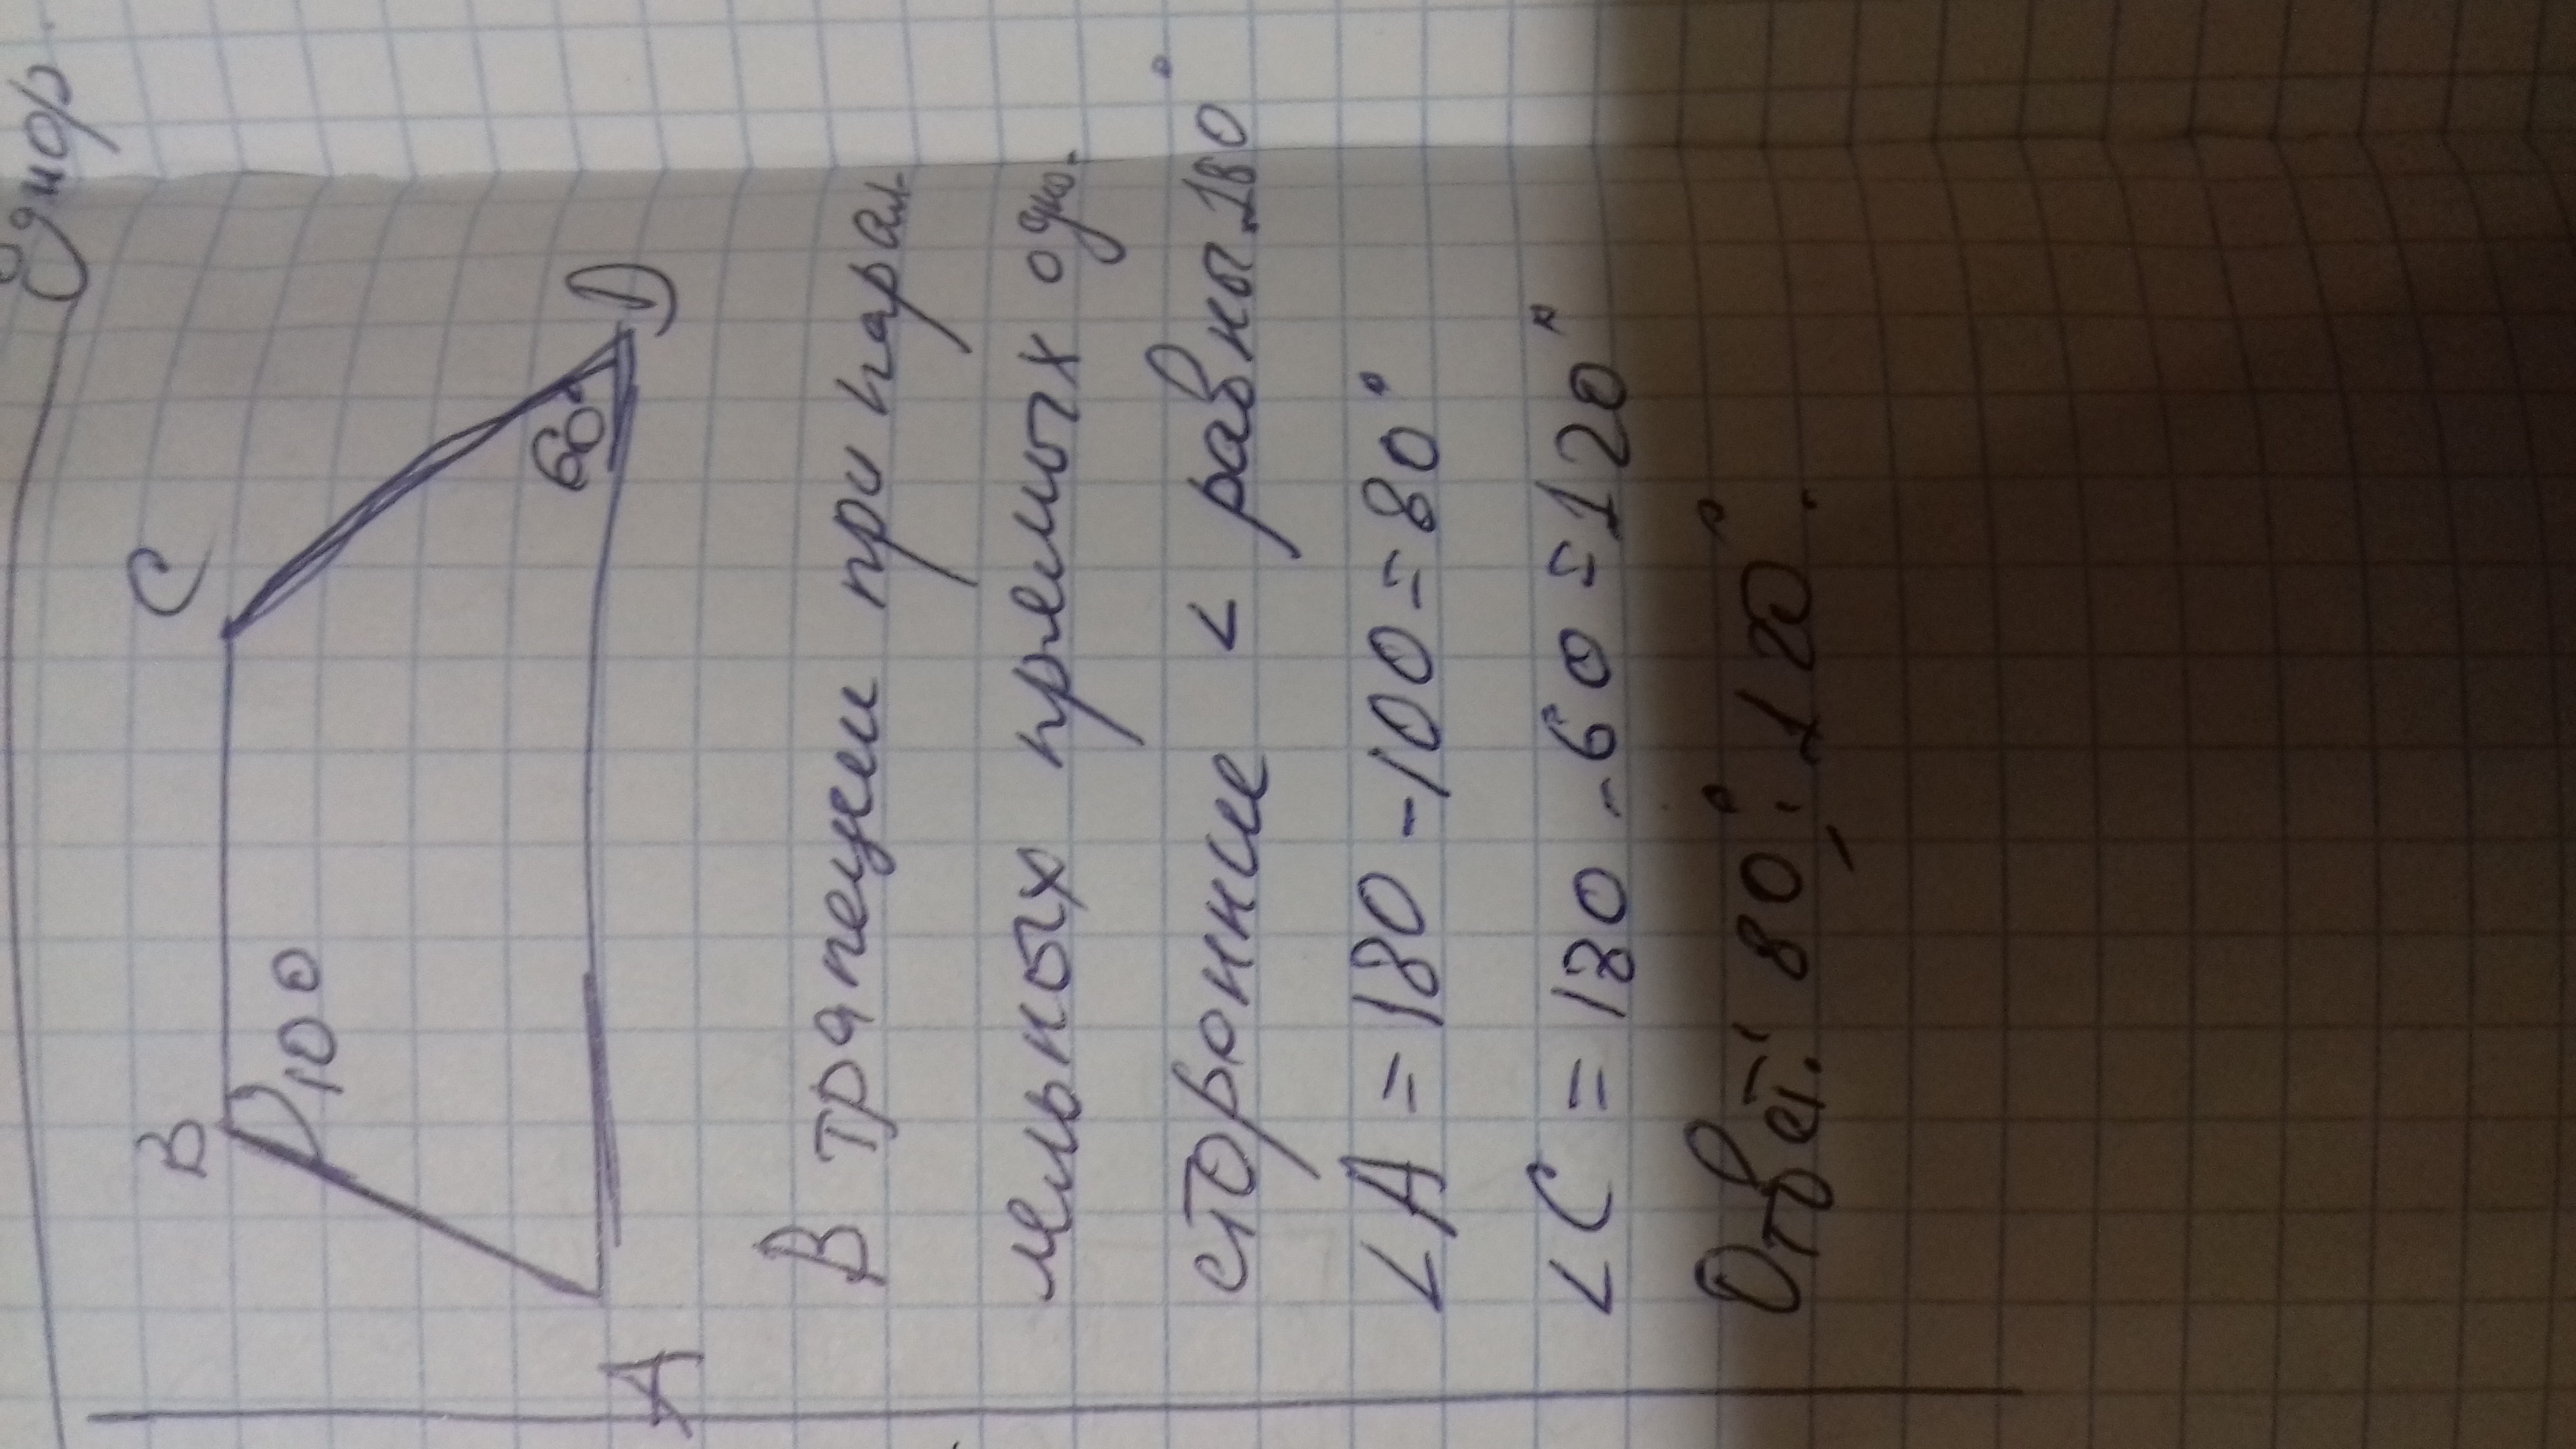 B
C
100
60°
A
D
В трапеции при парал-
мельных премых одно-
сторонние < равны 180°
∠A = 180 - 100 = 80°
∠C = 180 - 60 = 120°
Ответ: 80°; 120°.